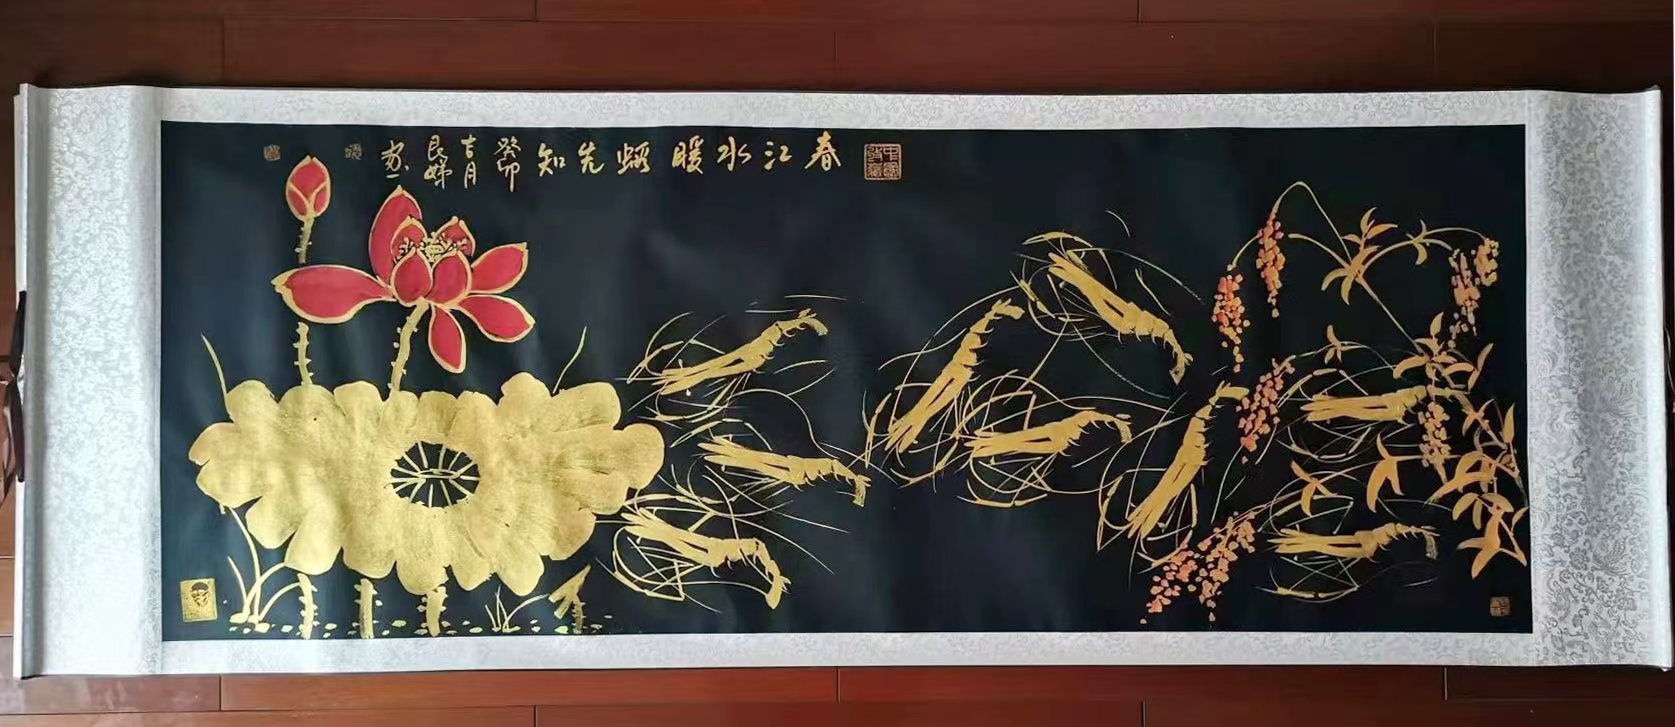 春江水暖蝦先知
癸卯
吉月
良娣